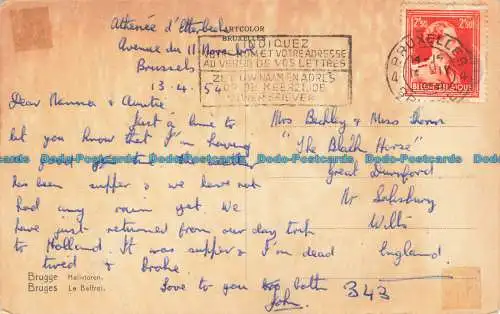 Athenée d'Etterbeck
Avenue du 11 Novembre
Brussels
13.4.54
ARTCOLOR
BRUXELLES
INDIQUEZ
NOM ET VOTRE ADRESSE
AU VERSO DE VOS LETTRES
ZET UW NAAM EN ADRES
OP DE KEERZIJDE
UWER BRIEVEN
2F50 2F50
BELGIE-BELGIQUE
BRUXELLES
1954
Dear Mamma & Auntie
Just a line to
let you know that I'm having
a good time. The weather
has been super & we have not
had any rain yet. We
have just returned from our day trip
to Holland. It was super & I'm dead
tired & broke.
Love to you both
John.
Mrs Buckley & Miss
"The Black Horse"
Great Durnford
Nr Salisbury
Wilts
England.
343
Brugge Hallentoren.
Bruges Le Beffroi.
Do-Postcards Do-Postcards Do-Postcards Do-Postcards